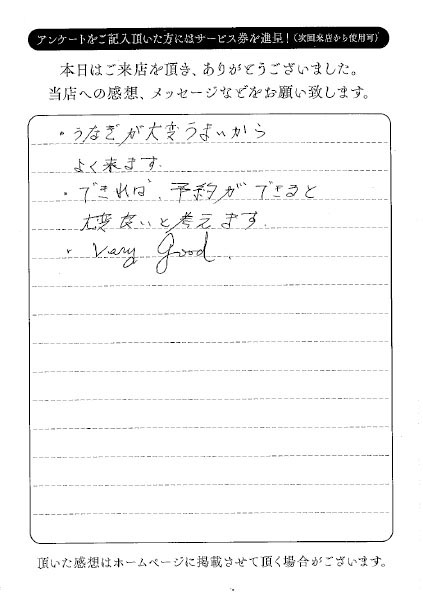 アンケートをご記入頂いた方にはサービス券を進呈！（次回来店から使用可）
本日はご来店を頂き、ありがとうございました。
当店への感想、メッセージなどをお願い致します。
・うなぎが大変うまいから
よく来ます.
・できれば、予約ができると
大変良いと考えます.
・Very Good.
頂いた感想はホームページに掲載させて頂く場合がございます。